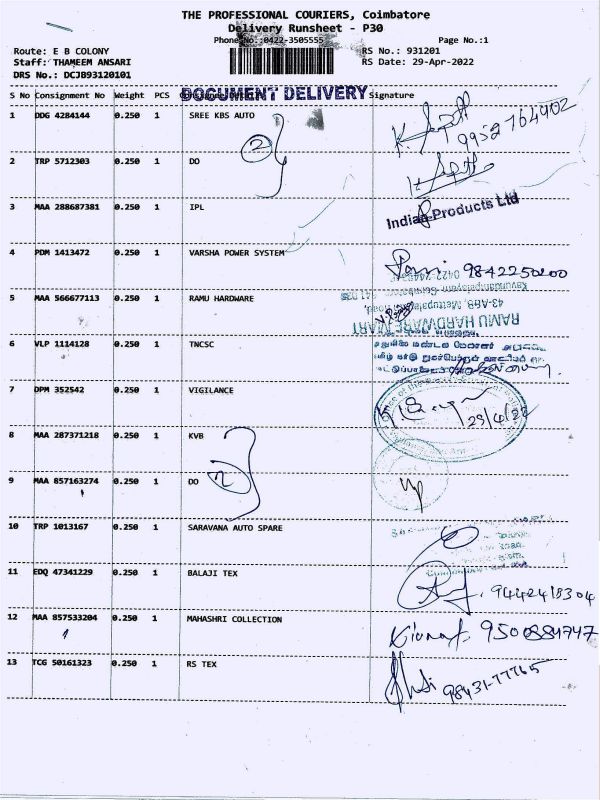 THE PROFESSIONAL COURIERS, Coimbatore
Delivery Runsheet - P30
Phone No.:0422-3505555
Page No.:1
Route: E B COLONY
RS No.: 931201
Staff: THAMEEM ANSARI
RS Date: 29-Apr-2022
DRS No.: DCJB93120101
S No Consignment No Weight PCS DOCUMENT DELIVERY Signature
1 DDG 4284144 0.250 1 SREE KBS AUTO
9952764902
2
2 TRP 5712303 0.250 1 DO
3 MAA 288687381 0.250 1 IPL
Indian Products Ltd
4 PDM 1413472 0.250 1 VARSHA POWER SYSTEM
9842250200
5 MAA 566677113 0.250 1 RAMU HARDWARE
43-ABB, Mettupalayam Road,
RAMU HARDWARE MART
6 VLP 1114128 0.250 1 TNCSC
7 DPM 352542 0.250 1 VIGILANCE
29/4/22
8 MAA 287371218 0.250 1 KVB
2
9 MAA 857163274 0.250 1 DO
10 TRP 1013167 0.250 1 SARAVANA AUTO SPARE
11 EDQ 47341229 0.250 1 BALAJI TEX
9442418304
12 MAA 857533204 0.250 1 MAHASHRI COLLECTION
9500884747
13 TCG 50161323 0.250 1 RS TEX
98431-77765